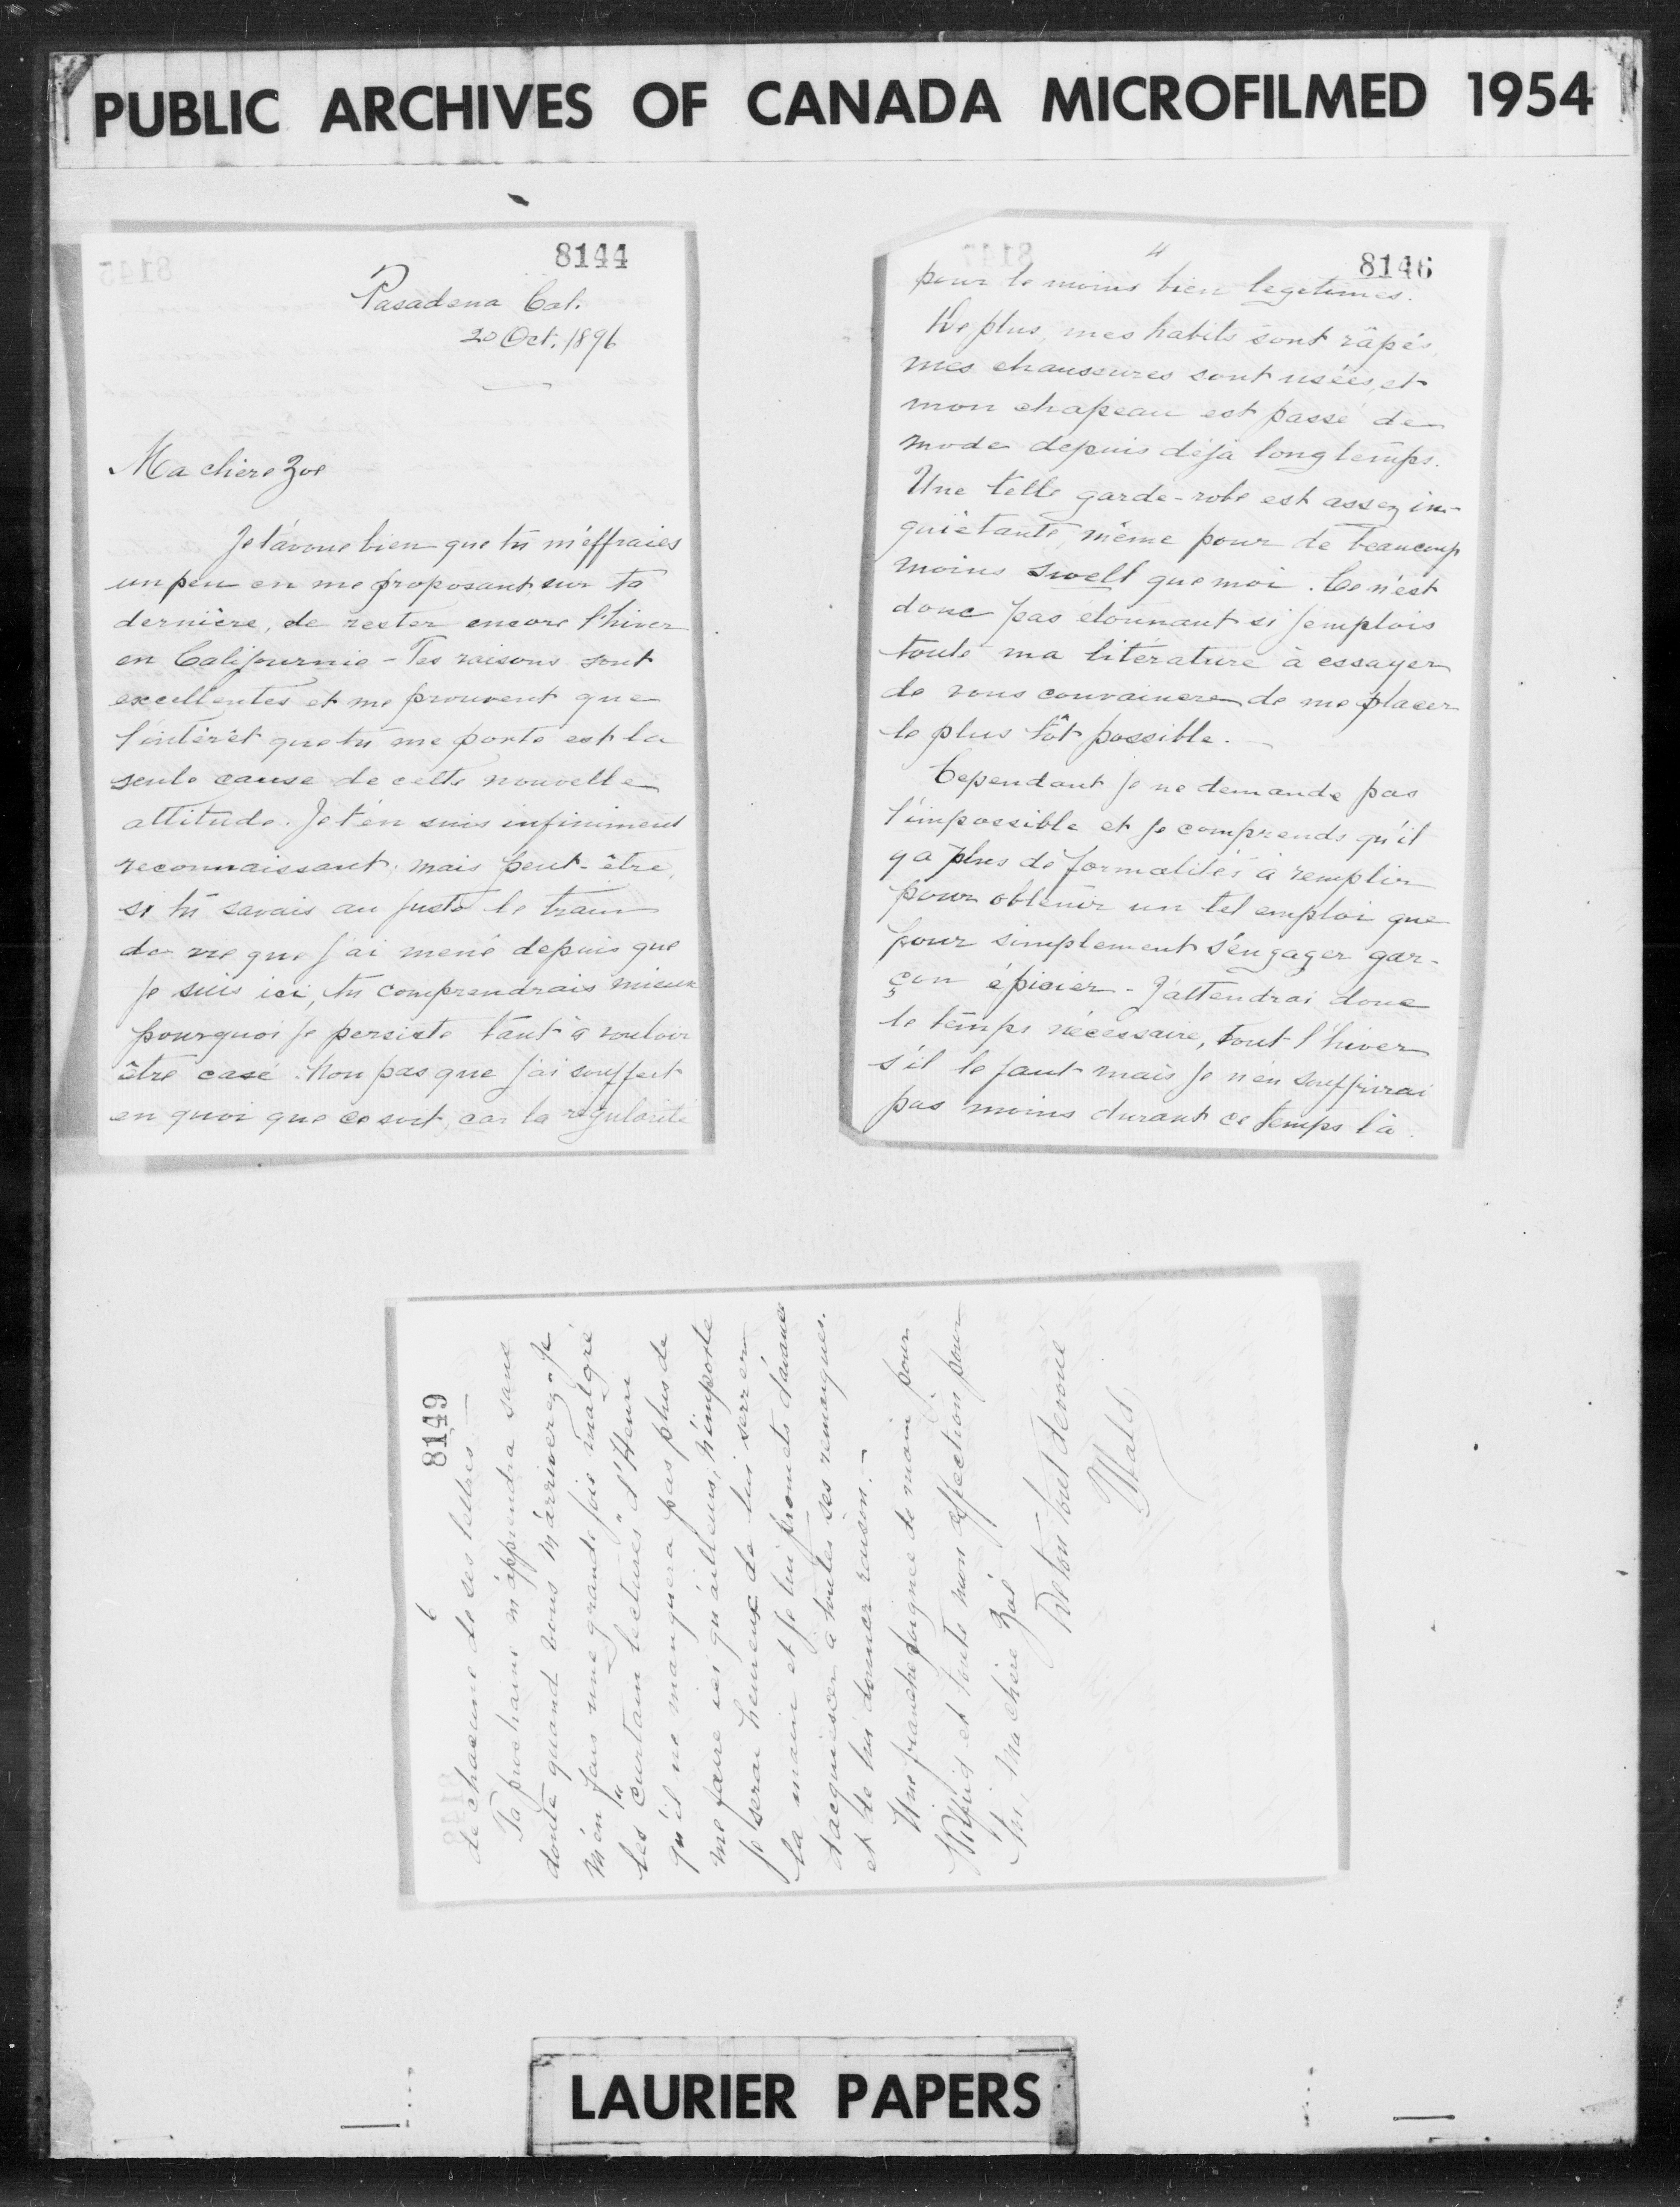 PUBLIC ARCHIVES OF CANADA MICROFILMED 1954
8144
Pasadena Cal.
20 Oct. 1896
Ma chère Zoe
Je t'avoue bien que tu m'effraies
un peu en me proposant, sur ta
dernière, de rester encore l'hiver
en Californie - Tes raisons sont
excellentes et me prouvent que
l'intérêt que tu me porte est la
seule cause de cette nouvelle
attitude. Je t'en suis infiniment
reconnaissant; mais peut-être,
si tu savais au juste le train
de vie que j'ai mené depuis que
je suis ici, tu comprendrais mieux
pourquoi je persiste tant à vouloir
être casé. Non pas que j'ai souffert
en quoi que ce soit, car la régularité
4
8146
pour le moins bien legetimes.
De plus, mes habits sont râpés,
mes chaussures sont usées, et
mon chapeau est passé de
mode depuis déjà longtemps.
Une telle garde-robe est assez in-
quiétante, même pour de beaucoup
moins swell que moi. Ce n'est
donc pas etonnant si j'emplois
toute ma litérature à essayer
de vous convaincre de me placer
le plus tôt possible.
Cependant je ne demande pas
l'impossible et je comprends qu'il
y a plus de formalités à remplir
pour obtenir un tel emploi que
pour simplement s'engager gar-
çon épicier - J'attendrai donc
le temps nécessaire, tout l'hiver
s'il le faut mais je n'en souffrirai
pas moins durant ce temps là.
6
8149
de chacune de ses lettres -
Ta prochaine m'apprendra sans
doute quand vous m'arriverez. Je
m'en fais une grande joie malgré
les "curtain lectures" d'Henri
qu'il ne manquera pas plus de
me faire ici qu'ailleurs, n'importe
je serai heureux de lui serrer
la main et je lui promets d'avance
d'acquiescer à toutes ses remarques.
et de lui donner raison. -
Une franche poignée de main pour
Wilfrid et toute mon affection pour
Toi, ma chère Zoé
De ton tout dévoué
LAURIER PAPERS